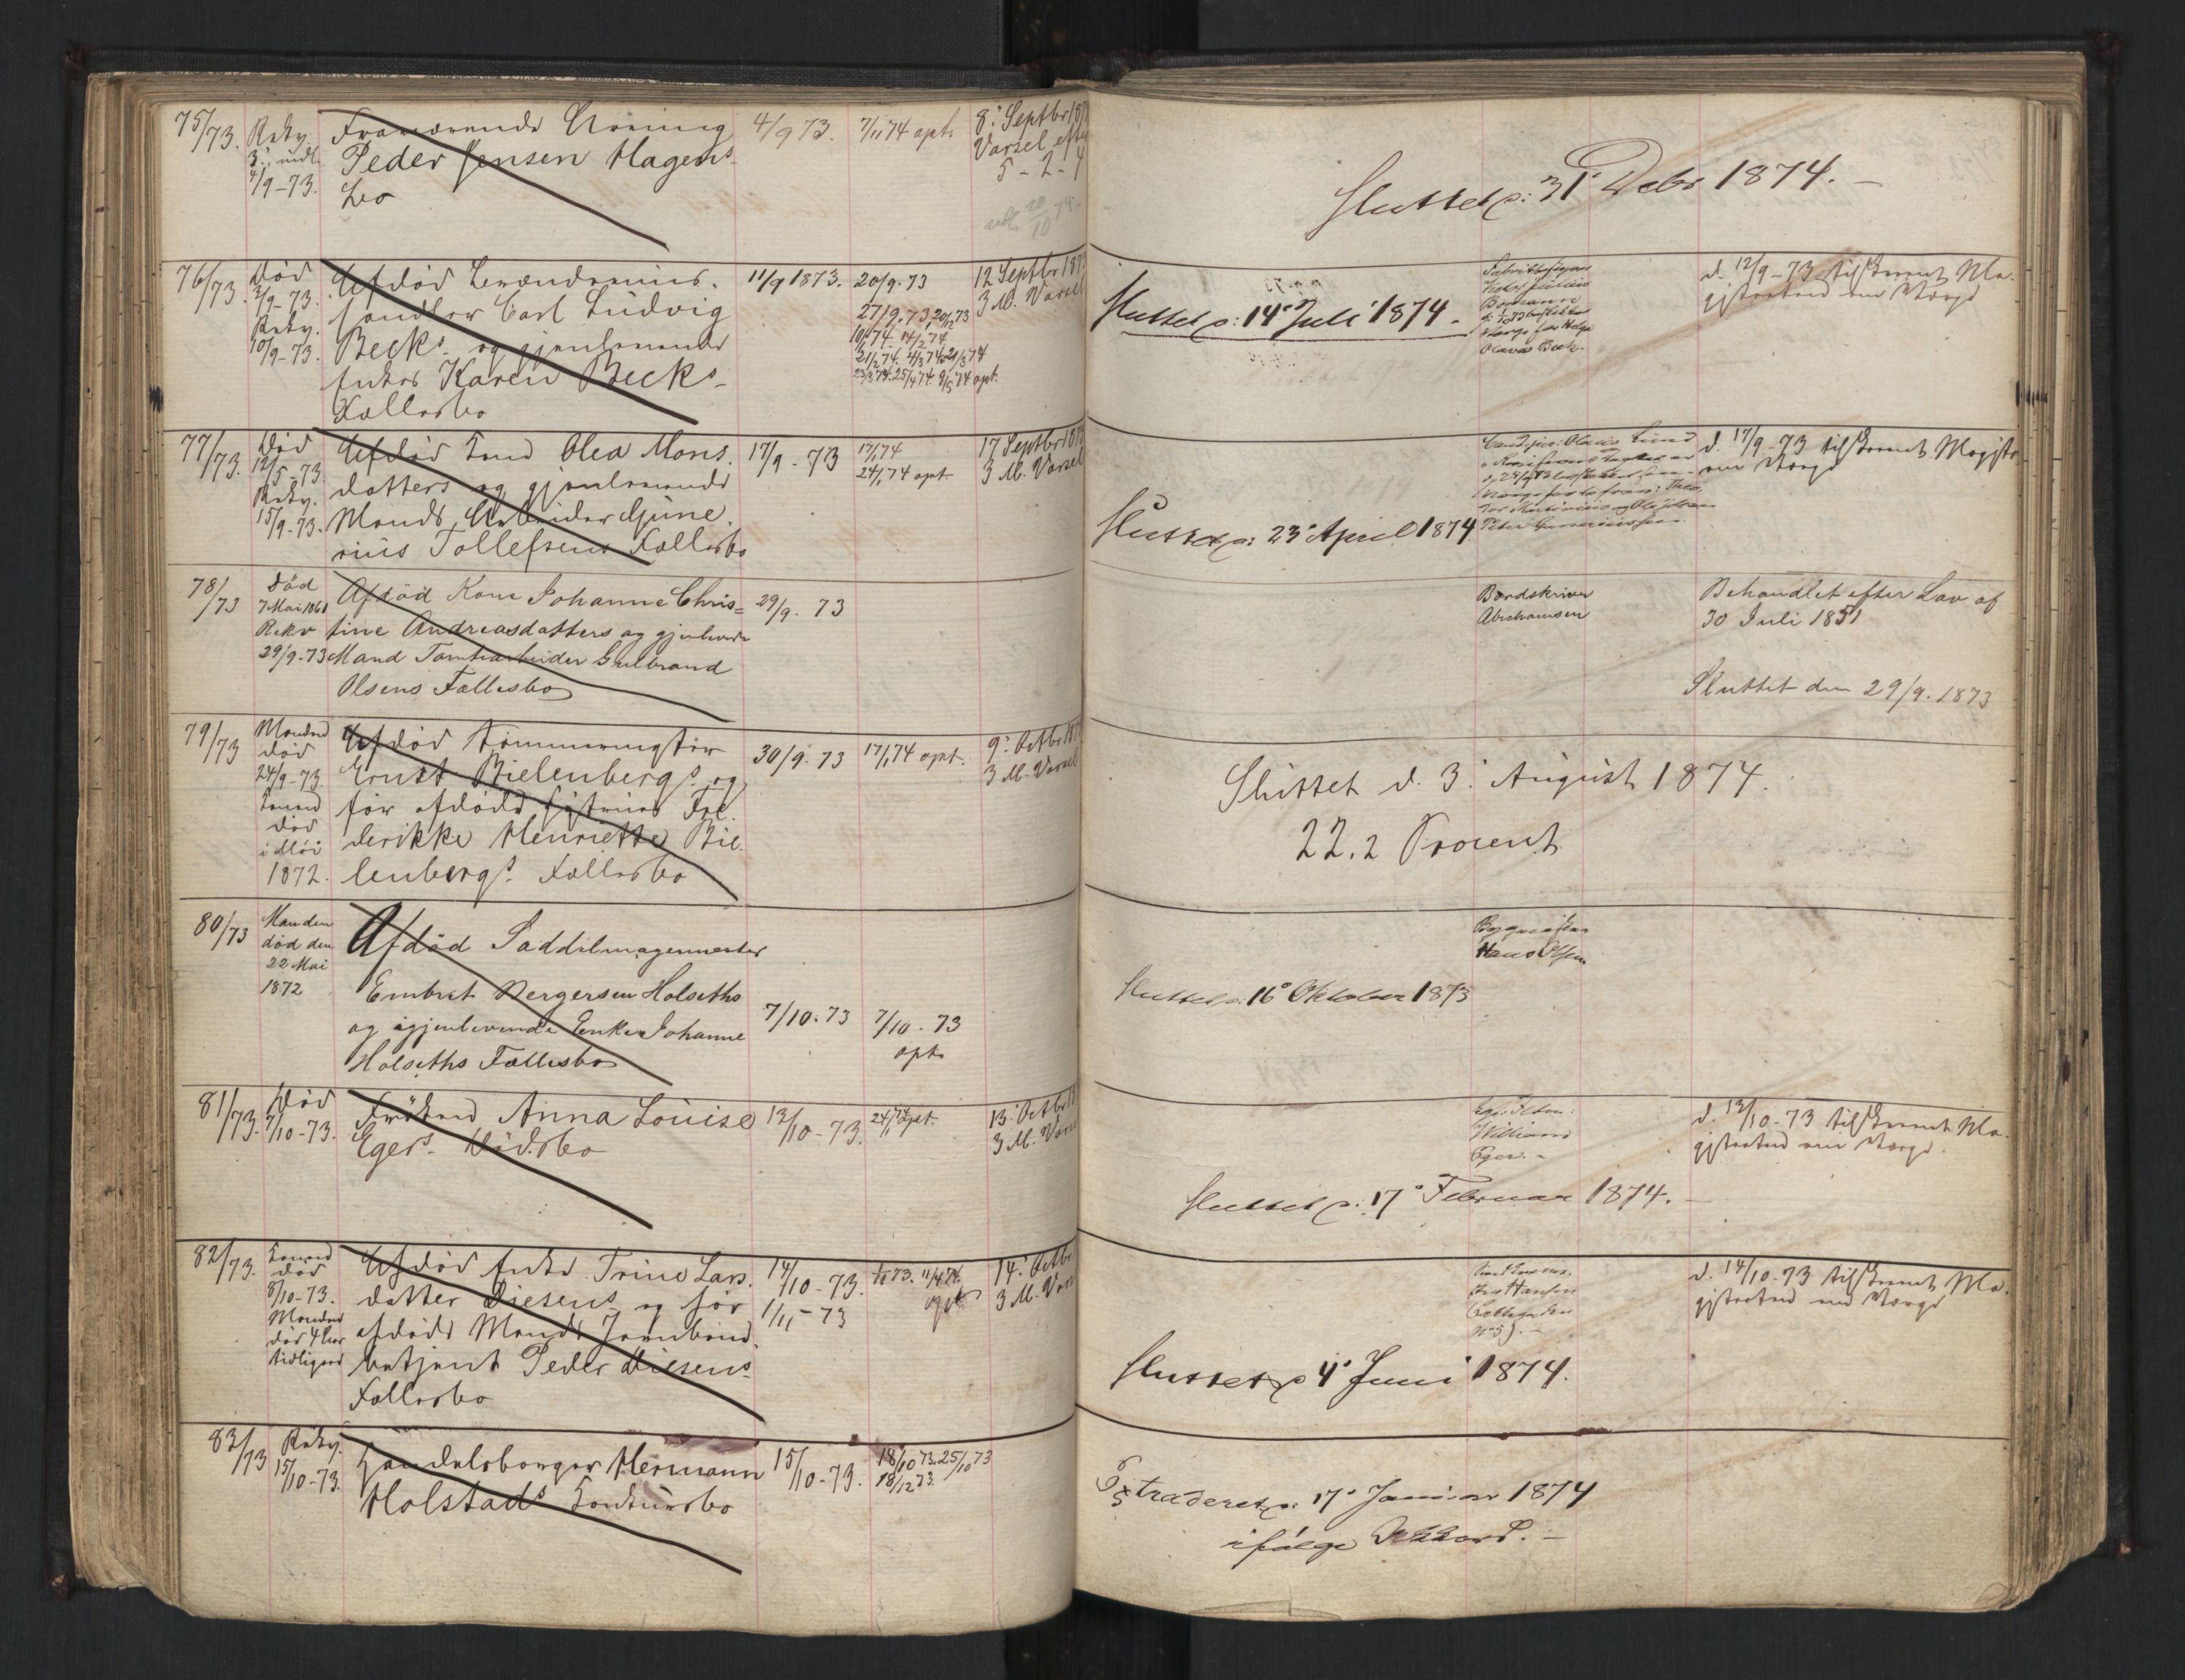 75/73.
Rekv.
4/9-73.
Peder Jensen Hagens
bo
4/9 73.
7/11 74 opt.
8de Septbr
Varsel
Sluttet d: 31 Debr 1874.
76/73.
Død
3/9-73.
Rekv.
10/9-73.
Afdød Brændeviins-
handler Carl Ludvig
Becks og gjenlevende
Enkes Karen Becks
Fællesbo
11/9 1873.
20/9.73
27/9.73. 20/12 73
10/1 74. 14/2 74
21/2 74. 4/3 74. 21/3 74
23/3 74. 25/4 74. 9/5 74 opt.
12 Septbr
3 M. Varsel
Sluttet d: 14de Juli 1874.
d. 12/9-73 tilskrevet Ma-
gistraten om Værge
77/73.
Død
12/5-73.
Rekv.
15/9-73.
Afdød Kone Olea Mons-
datters og gjenlevende
Mands Arbeider Gune-
rius Tollefsens Fællesbo
17/9-73
17/1 74
24/1 74 opt.
17 Septbr
3 M. Varsel
Sluttet d: 23de April 1874
d. 17/9-73 tilskrevet Magistr.
om Værge
78/73
Død
7 Mai 1861
Rekv
29/9-73
Afdød Kone Johanne Chris=
tine Andreasdatters og gjenlevende
Mand Tomtearbeider Gulbrand
Olsens Fællesbo
29/9. 73
Bordskriver
Abrahamsen
Behandlet efter Lov af
30 Juli 1851
Sluttet den 29/9. 1873
79/73
Manden
død
24/9-73.
Konen
død
i Mai
1872.
Afdød Tømmermand
Ernst Bielenbergs og
før afdøde Hustrues Fre-
derikke Henriette Bie-
lenbergs Fællesbo
30/9. 73
17/1 74 opt.
9de Octbr
3 M. Varsel
Sluttet d. 3de August 1874.
22,2 Procent
80/73
Manden
død den
22 Mai
1872
Afdød Saddelmagermester
Embret Bergersen Holseths
og gjenlevende Enke Johanne
Holseths Fællesbo
7/10. 73
7/10. 73
opt.
Hans Olsen
Sluttet d: 16de Oktober 1873
81/73.
Død
7/10-73.
Frøken Anna Louise
Egers Dødsbo
13/10-73.
24/1 74 opt.
13de Octbr
3 M. Varsel
William
Eger.
d. 13/10-73 tilskrevet Ma-
gistraten om Værge.
Sluttet d: 17de Februar 1874.
82/73.
Konen
død
8/10-73.
Manden
død 4 Aar
tidligere
Afdød Enke Trine Lars-
datter Diesens og før
afdøde Mands Jernbane-
betjent Peder Diesens
Fællesbo
14/10-73.
1/11-73
1/11 73. 11/4 74.
opt.
14de Octbr
3 M. Varsel
d. 14/10-73 tilskrevet Ma-
gistraten om Værge
Sluttet d 4de Juni 1874.
83/73
Rekv.
15/10-73.
Handelsborger Hermann
Holstads Konkursbo
15/10-73.
18/10 73. 25/10 73
18/12 73.
Extraderet d: 17de Januar 1874
ifølge Akkord.